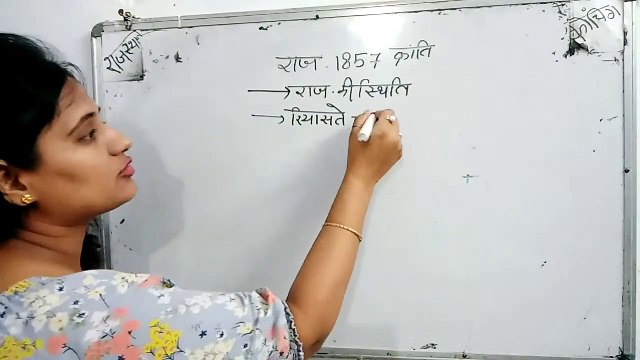 राजस्थान
कोचिंग
राज. 1857 क्रांति
→ राज. की स्थिति
→ रियासते -